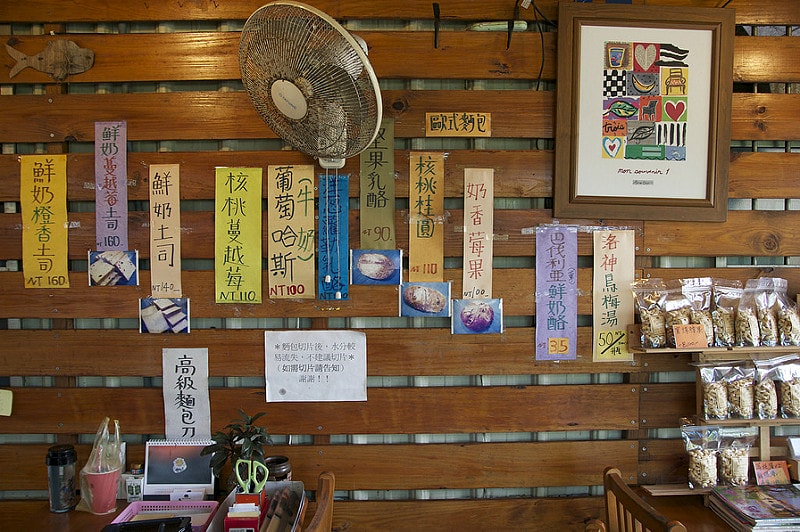 歐式麵包
鮮奶橙香土司
NT 160.
鮮奶蔓越莓土司
NT 160.
鮮奶土司
NT 140.
核桃蔓越莓
NT 110
葡萄哈斯
(牛奶)
NT 100
果乳酪
NT 90.
核桃桂圓
NT 110
奶香莓果
NT 100.
巴伐利亞鮮奶酪
NT 35
洛神烏梅湯
50/
trois
mon souvenir !
*麵包切片後，水分較
易流失，不建議切片*
(如需切片請告知)
謝謝！！
高級麵包刀